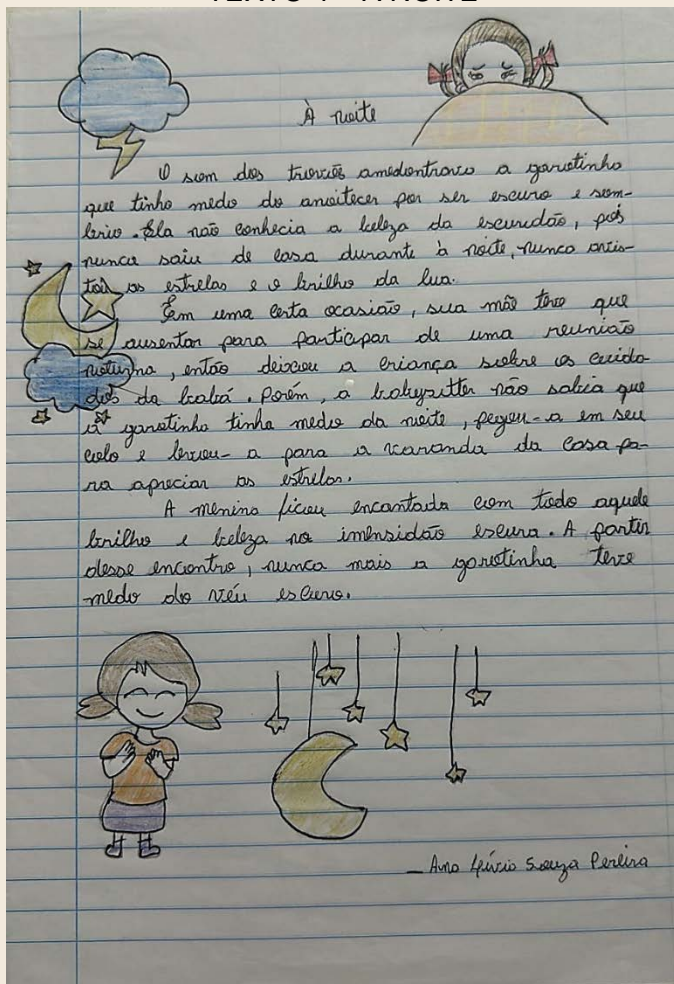 À noite
O som dos trovões amedontrava a garotinha
que tinha medo do anoitecer por ser escuro e som-
brio. Ela não conhecia a beleza da escuridão, pois
nunca saiu de casa durante à noite, nunca avis-
tou as estrelas e o brilho da lua.
Em uma certa ocasião, sua mãe teve que
se ausentar para participar de uma reunião
noturna, então deixou a criança sobre os cuida-
dos da babá. Porém, a babysitter não sabia que
a garotinha tinha medo da noite, pegou-a em seu
colo e levou-a para a varanda da casa pa-
ra apreciar as estrelas.
A menina ficou encantada com todo aquele
brilho e beleza na imensidão escura. A partir
desse encontro, nunca mais a garotinha teve
medo do véu escuro.
_ Ana Lívia Souza Pereira